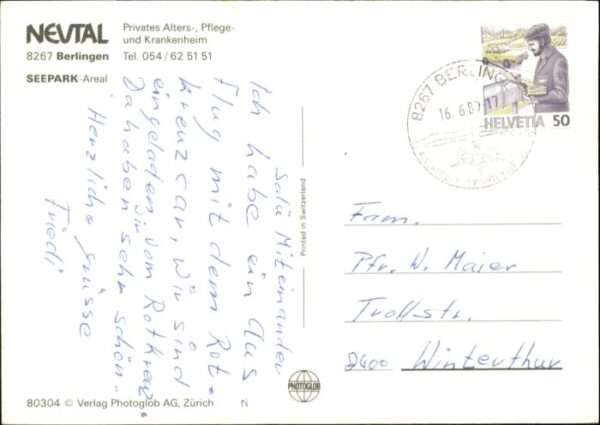 NEUTAL
Privates Alters-, Pflege-
und Krankenheim
8267 Berlingen
Tel. 054/62 51 51
SEEPARK-Areal
Salü Miteinander
Ich habe ein Aus-
flug mit dem Rot-
kreuzcar, wir sind
eingeladen vom Rotkreuz
Da haben wir sehr schön.
Herzliche Grüsse
Friedi
Printed in Switzerland
PHOTOGLOB
80304 © Verlag Photoglob AG, Zürich
8267 BERLINGEN
16.6.8
17
HELVETIA 50
Fam.
Pfr. W. Maier
Trollstr.
8400 Winterthur